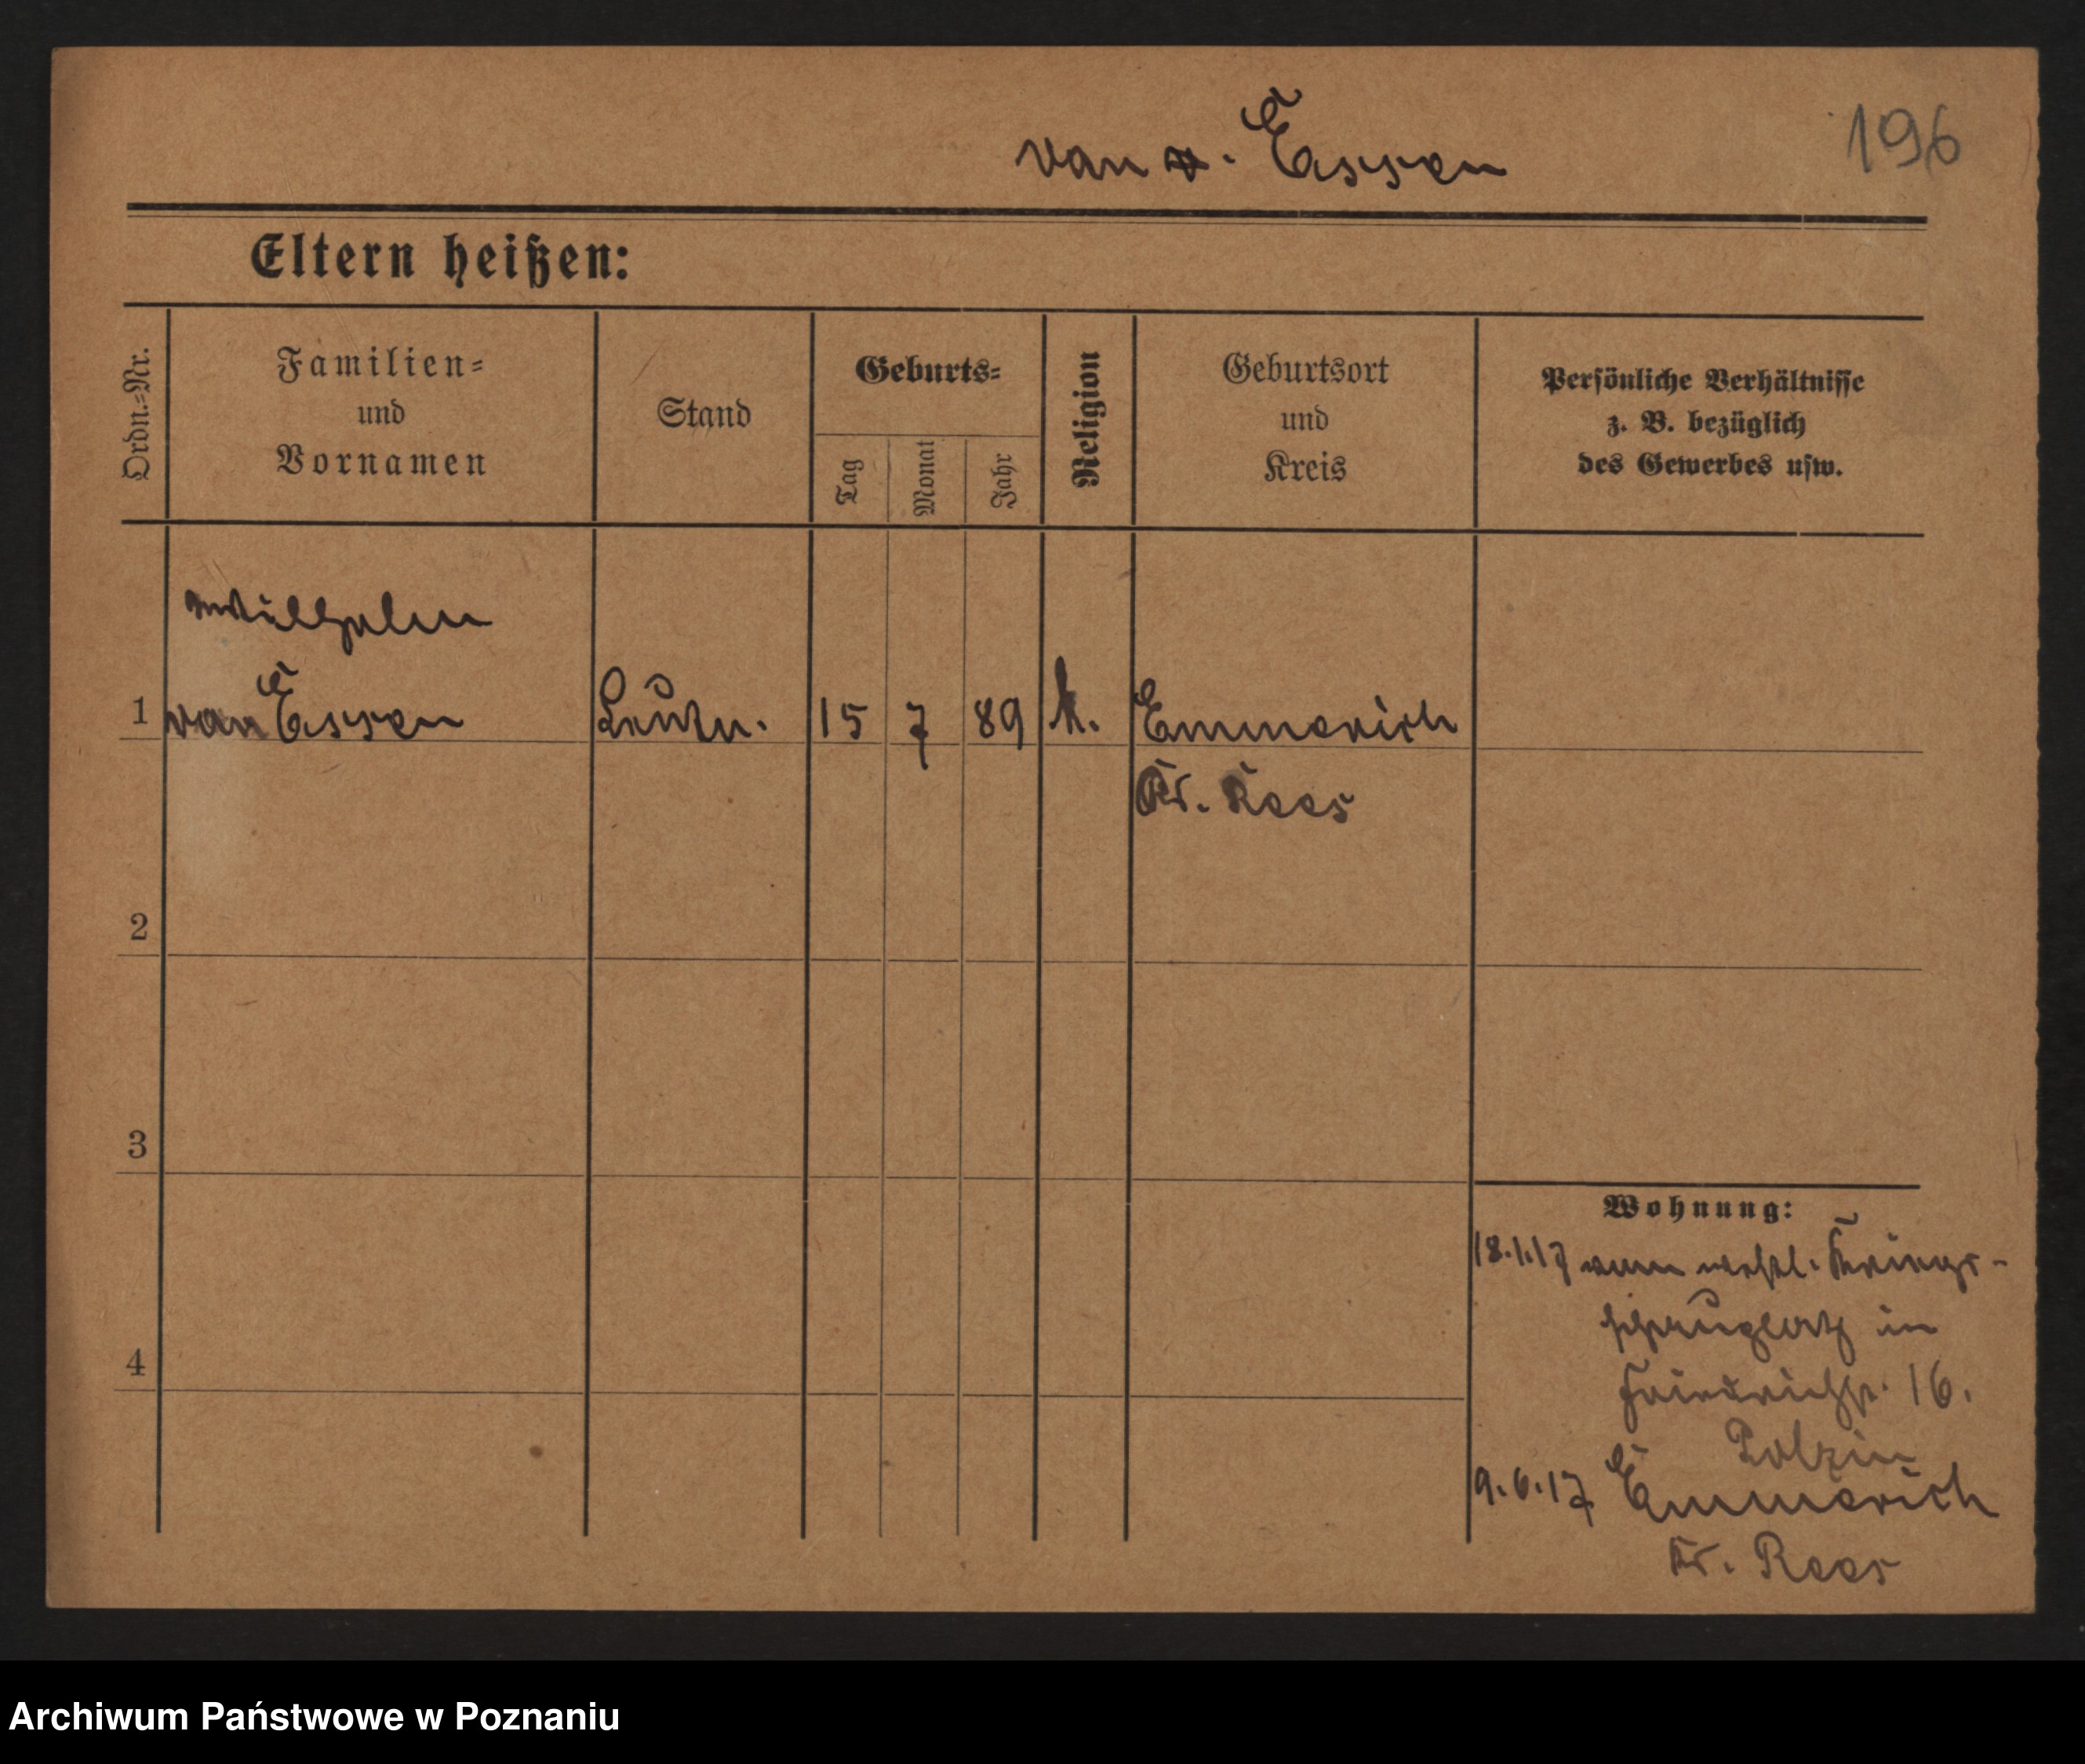 van Essen
196
Eltern heißen:
Ordn.-Nr.
Familien-
und
Vornamen
Stand
Geburts-
Tag
Monat
Jahr
Religion
Geburtsort
und
Kreis
Persönliche Verhältnisse
z. B. bezüglich
des Gewerbes usw.
Wilhelm
1 van Essen Leutn. 15 7 89 k. Emmerich
Kr. Rees
2
3
4
Wohnung:
18.1.17 vom westl. Kriegs-
schauplatz in
Friedrichstr. 16.
Polzin
9.6.17 Emmerich
Kr. Rees
Archiwum Państwowe w Poznaniu